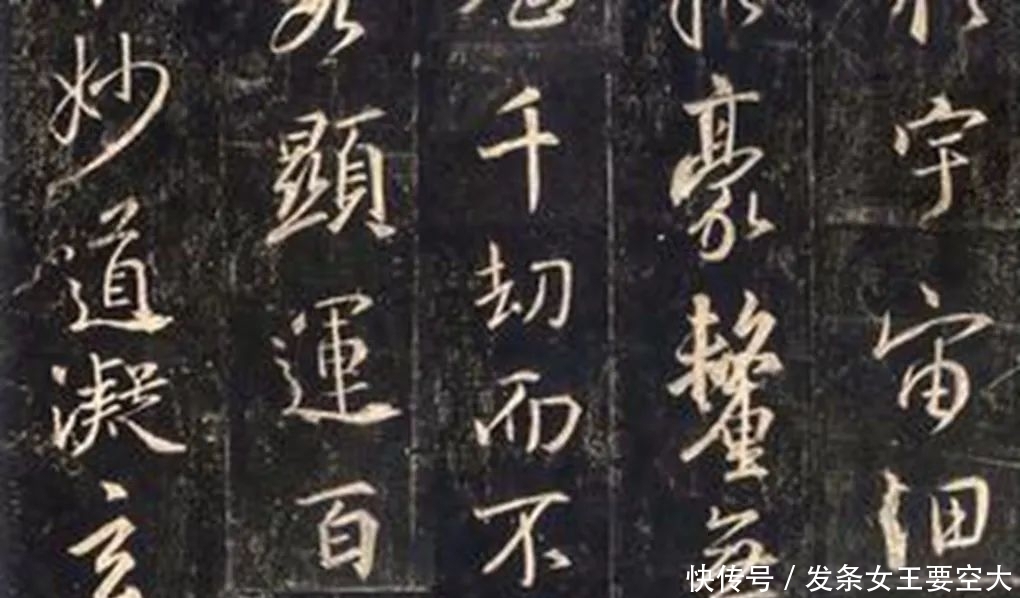 宇宙細
豪釐無
千劫而不
顯運百
妙道凝玄
快传号 / 发条女王要空大